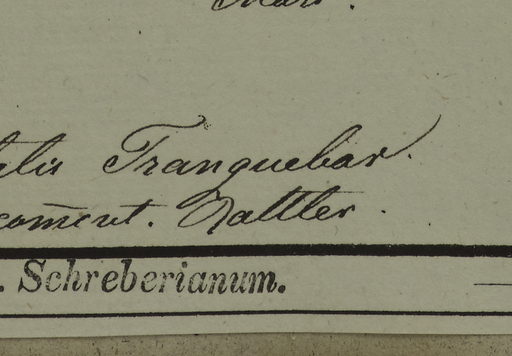 Tranquebar.
com̅ent. Rattler.
. Schreberianum.